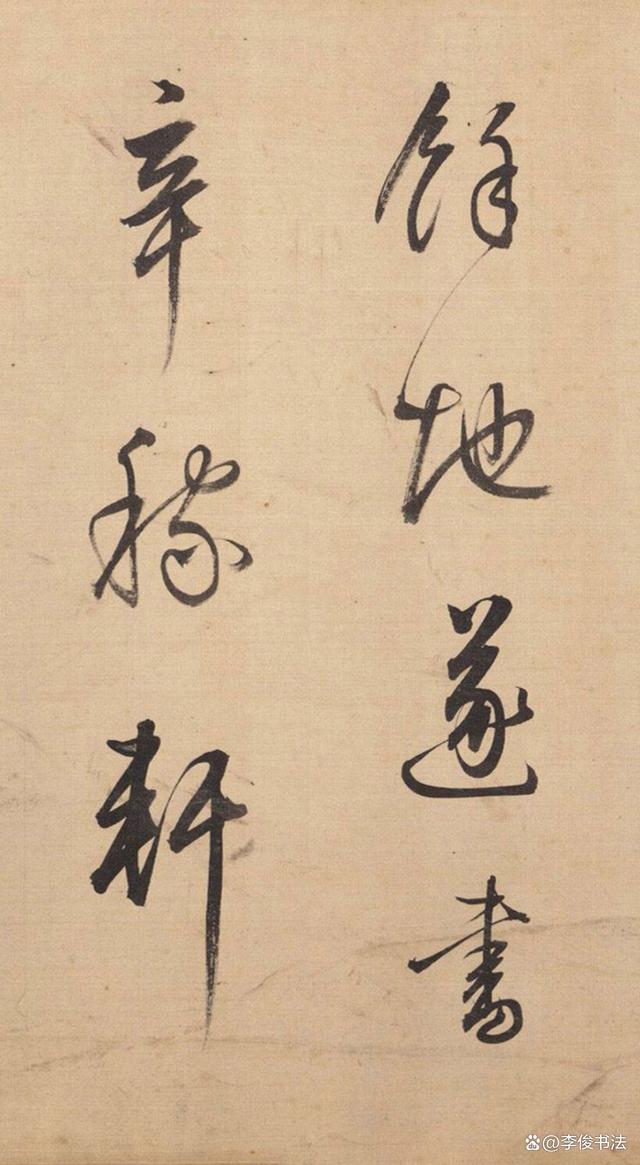 餘地遂書
辛稼軒
@李俊书法